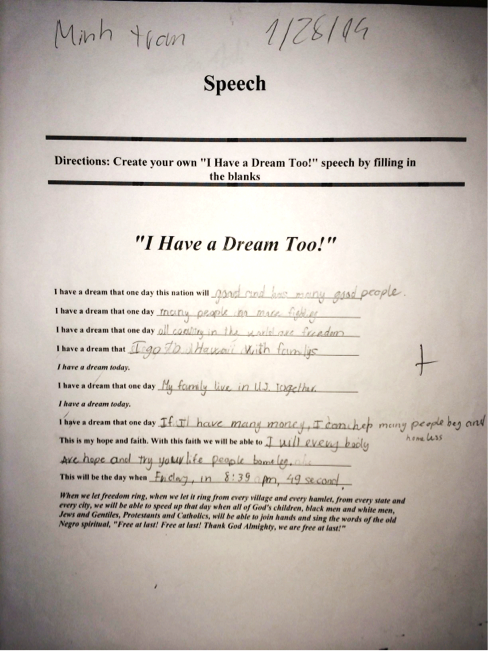 Minh tran 1/28/14
Speech
Directions: Create your own "I Have a Dream Too!" speech by filling in
the blanks
"I Have a Dream Too!"
I have a dream that one day this nation will good and have many good people.
I have a dream that one day many people no more fighting
I have a dream that one day all country in the world are freedom
I have a dream that I go to Hawaii with familys
I have a dream today.
I have a dream that one day My family live in U.S together
I have a dream today.
I have a dream that one day If I have many money, I can help many people beg and
homeless
This is my hope and faith. With this faith we will be able to I will every body
are hope and try your life people
This will be the day when Friday, in 8:39 pm, 49 second.
When we let freedom ring, when we let it ring from every village and every hamlet, from every state and
every city, we will be able to speed up that day when all of God's children, black men and white men,
Jews and Gentiles, Protestants and Catholics, will be able to join hands and sing the words of the old
Negro spiritual, "Free at last! Free at last! Thank God Almighty, we are free at last!"